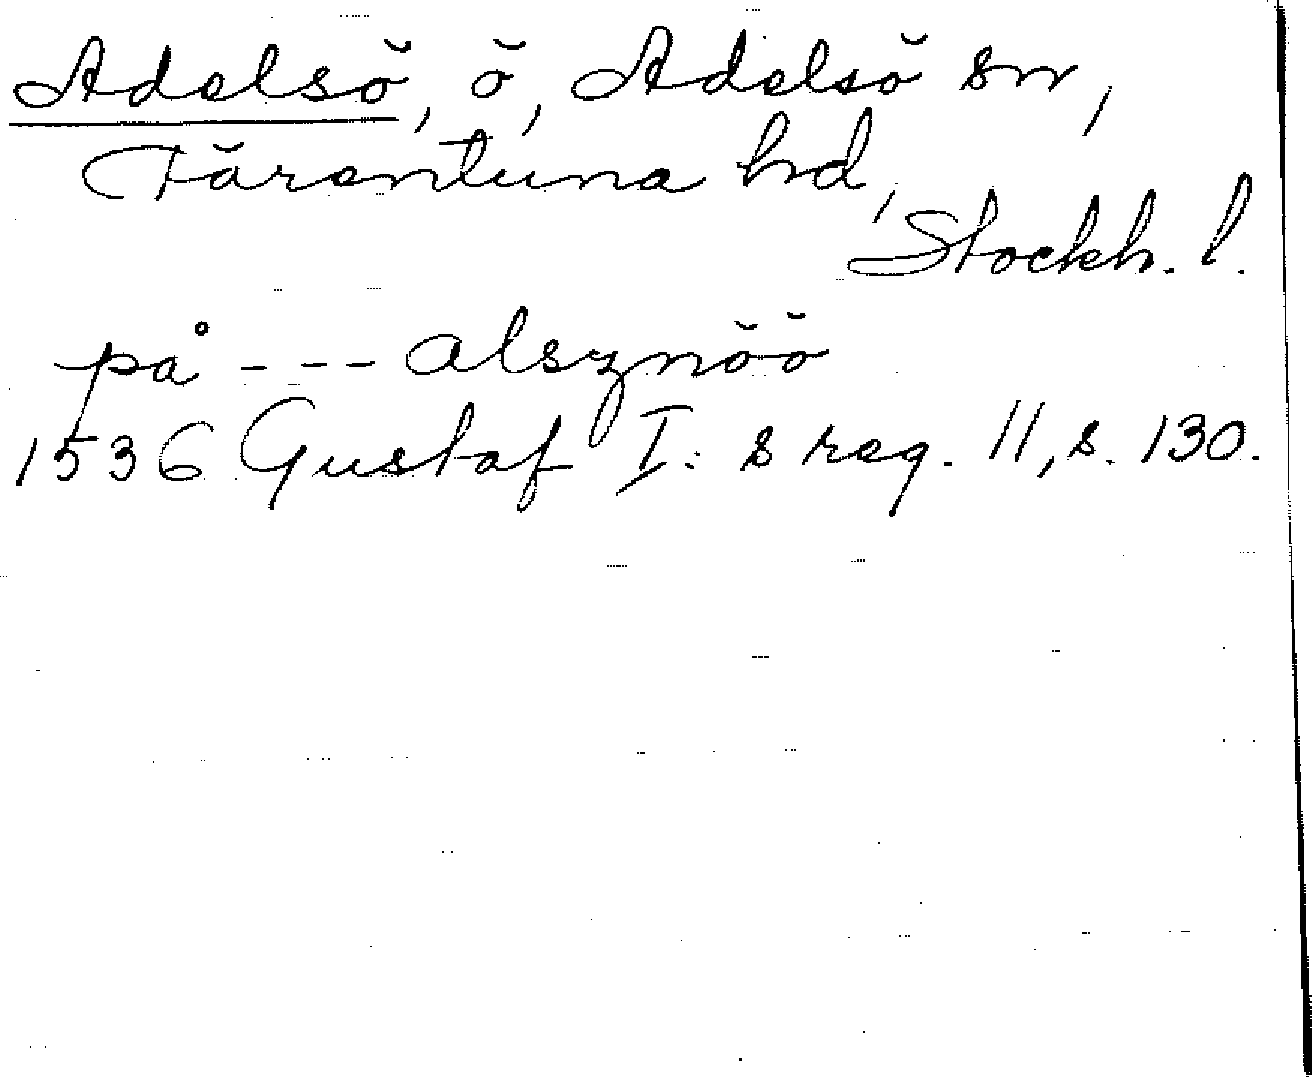 Adelsö, ö, Adelsö sn,
Färentuna hd,
Stockh. l.
på --- alsznöö
1536 Gustaf I:s reg. 11, s. 130.